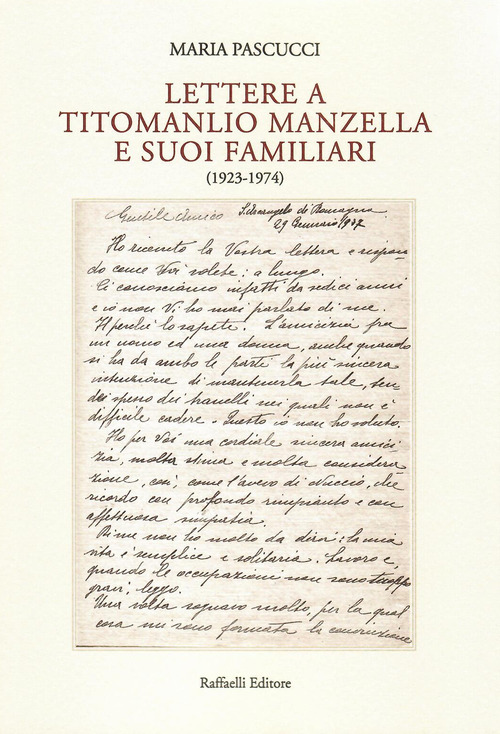 MARIA PASCUCCI
LETTERE A
TITOMANLIO MANZELLA
E SUOI FAMILIARI
(1923-1974)
Gentile Amico S. Arcangelo di Romagna
29 Gennaio 1937
Ho ricevuto la Vostra lettera e rispon-
do come Voi volete: a lungo.
Ci conosciamo infatti da sedici anni
e io non Vi ho mai parlato di me.
Il perchè lo sapete. L'amicizia fra
un uomo ed una donna, anche quando
si ha da ambo le parti la più sincera
intenzione di mantenerla tale, ten-
de spesso dei tranelli nei quali non è
difficile cadere. Questo io non ho voluto.
Ho per Voi una cordiale sincera amici-
zia, molta stima e molta considera-
zione, così, come l'avevo di Nuccio, che
ricordo con profondo rimpianto e con
affettuosa simpatia.
Di me non ho molto da dirvi: la mia
vita è semplice e solitaria. Lavoro e,
quando le occupazioni non sono troppo
gravi, leggo.
Una volta sognavo molto, per la qual
cosa mi sono formata la convinzione
Raffaelli Editore